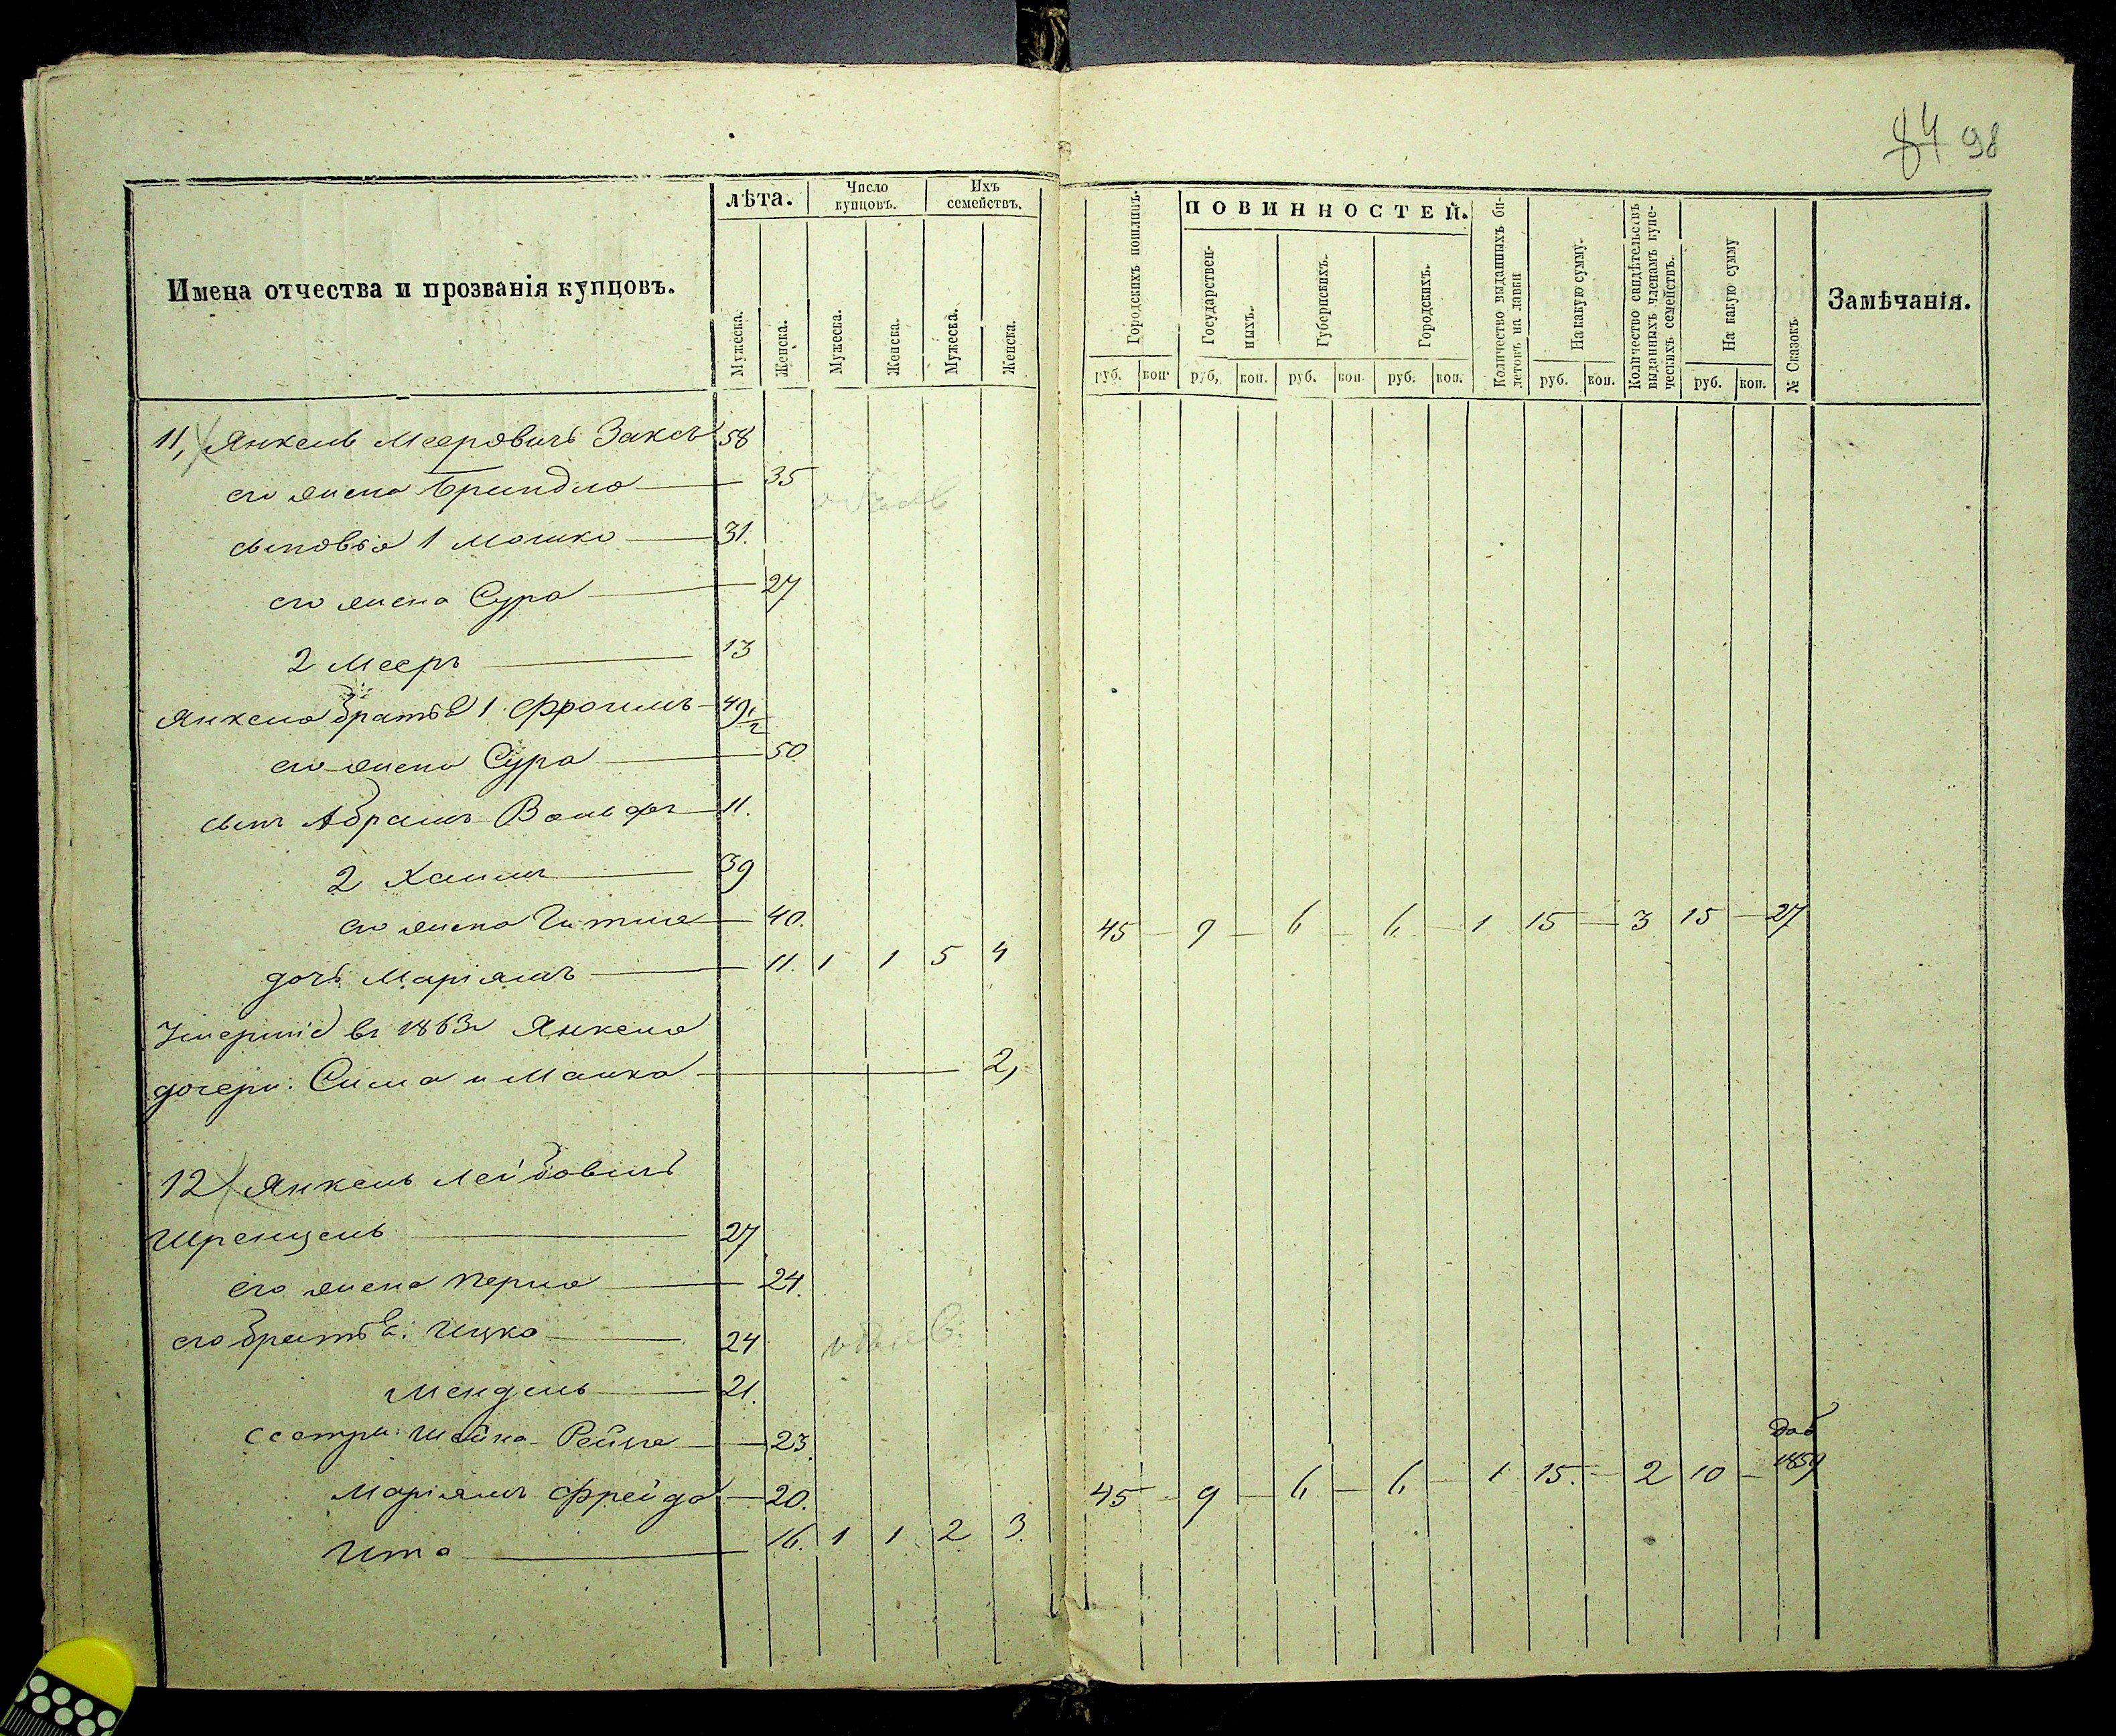 84 98
Имена отчества и прозванія купцовъ.
лѣта.
Число купцовъ.
Ихъ семействъ.
Мужеска.
Женска.
Мужеска.
Женска.
Мужеска.
Женска.
Городскихъ пошлинъ.
ПОВИННОСТЕЙ.
Государствен-
ныхъ.
Губернскихъ.
Городскихъ.
Количество выданныхъ би-
летовъ на лавки
На какую сумму.
Количество свидѣтельствъ
выданныхъ членамъ купе-
ческихъ семействъ.
На какую сумму
№ Сказокъ
Замѣчанія.
руб. коп. руб. коп. руб. коп. руб. коп. руб. коп. руб. коп.
11, Янкель Мееровичъ Заксъ 58
его жена Бриндля — 35
сыновья 1 Мошко — 31.
его жена Сура — 27
2 Мееръ — 13
Янкеля братья 1. Фроимъ — 49 1/2
его жена Сура — 50
сынъ Абрамъ Вольфъ — 11.
2 Хаимъ — 39
его жена Гитля — 40.
45 — 9 — 6 — 6 — 1 15 — 3 15 — 27
дочь Маріямъ — 11. 1 1 5 4
въ 1863 Янкеля
дочери: Сима и Малка — 2,
12 Янкель Лейбовичъ
Шренцель — 27
его жена Перля — 24.
его братья: Ицко — 24
Мендель — 21.
сестры: Шейна Рейца — 23.
Маріямъ Фрейда — 20.
45 — 9 — 6 — 6 — 1 15. — 2 10 — доб 1859
Ита — 16. 1 1 2 3.